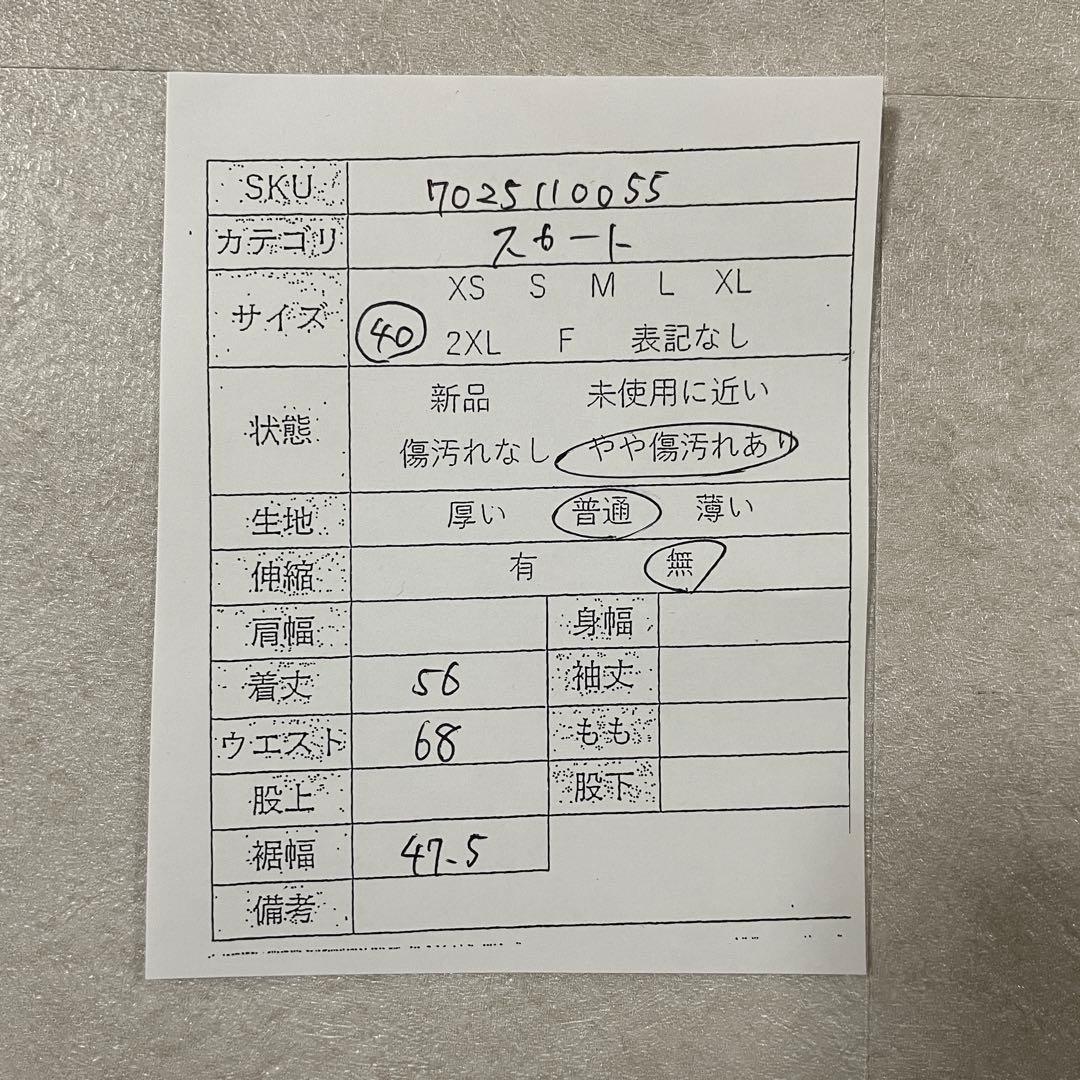 SKU 7025110055
カテゴリ スカート
サイズ XS S M L XL
40 2XL F 表記なし
状態 新品 未使用に近い
傷汚れなし やや傷汚れあり
生地 厚い 普通 薄い
伸縮 有 無
肩幅 身幅
着丈 56 袖丈
ウエスト 68 もも
股上 股下
裾幅 47.5
備考